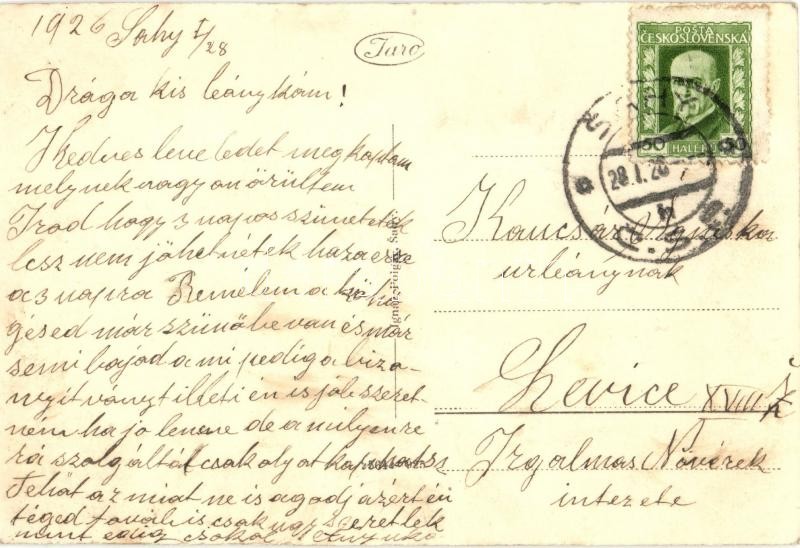 1926 Sahy I/28
Turo
Drága kis leánykám!
Kedves leveledet megkaptam
melynek nagyon örültem
Irod hogy 3 napos szünetetek
lesz nem jöhetnétek haza erre
a 3 napra Remélem a köhö
gésed már szünöbe van és már
semi bajod a mi pedig a bizo-
nyítványt illeti én is job szeret-
ném ha jo lenne de a milyenre
rá szolgáltál csak olyat kaphatsz
Tehát az miat ne is agodj azért én
téged továb is csak ugy szeretlek
mint edig csokol Anyuka
POŠTA
ČESKOSLOVENSKA
50 HALÉŘŮ 50
28.I.26
Kancsár Ágniska
urleánynak
Levice XVIII
Irgalmas Nővérek
intezete